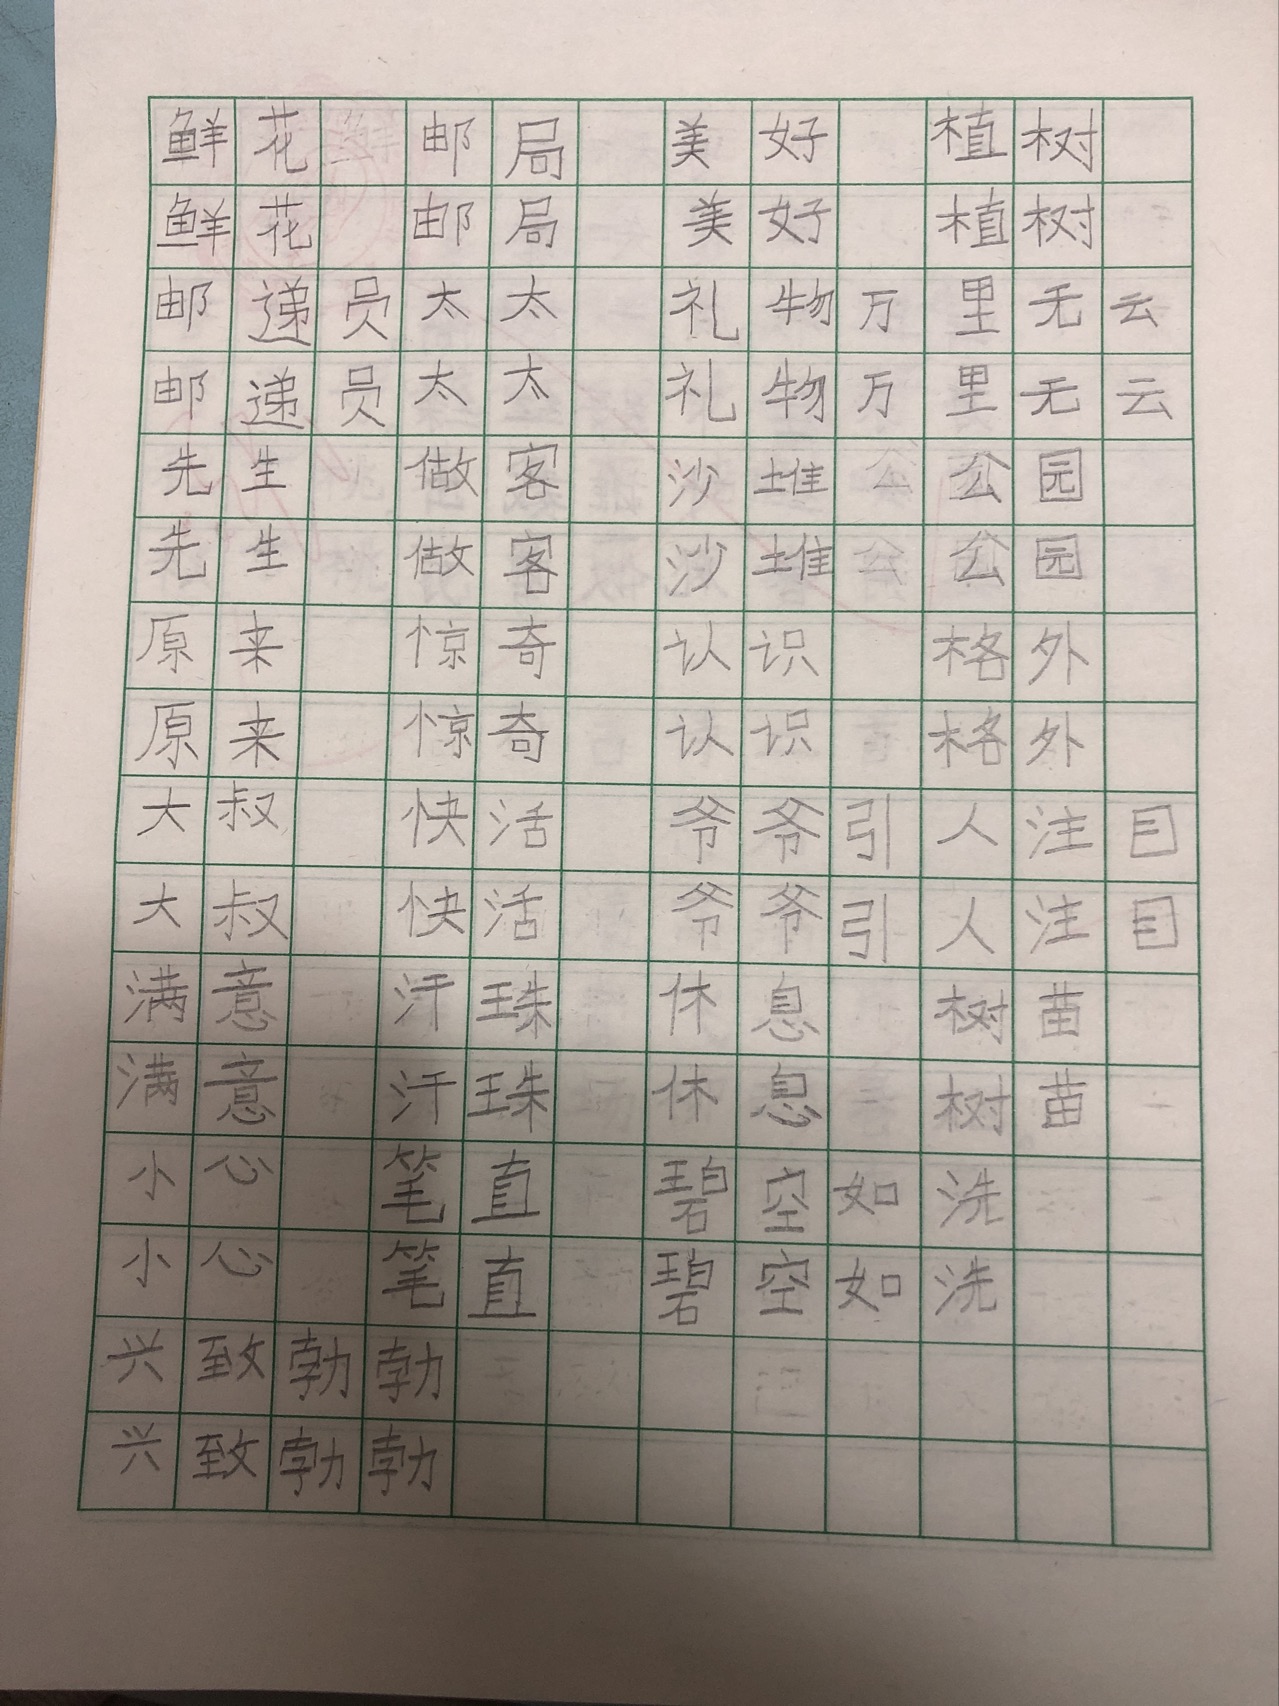 鲜花 邮局 美好 植树
鲜花 邮局 美好 植树
邮递员太太 礼物万里无云
邮递员太太 礼物万里无云
先生 做客 沙堆 公园
先生 做客 沙堆 公园
原来 惊奇 认识 格外
原来 惊奇 认识 格外
大叔 快活 爷爷引人注目
大叔 快活 爷爷引人注目
满意 汗珠 休息 树苗
满意 汗珠 休息 树苗
小心 笔直 碧空如洗
小心 笔直 碧空如洗
兴致勃勃
兴致勃勃